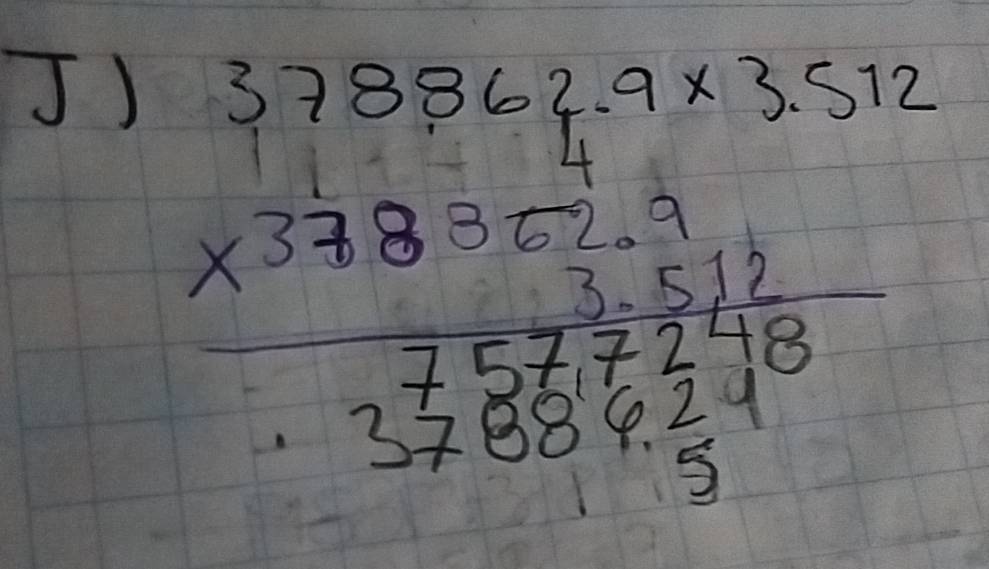 J) 378862.9 x 3.512
1 1 4
x 378862.9
3.512
757,7248
378862.29
1 5